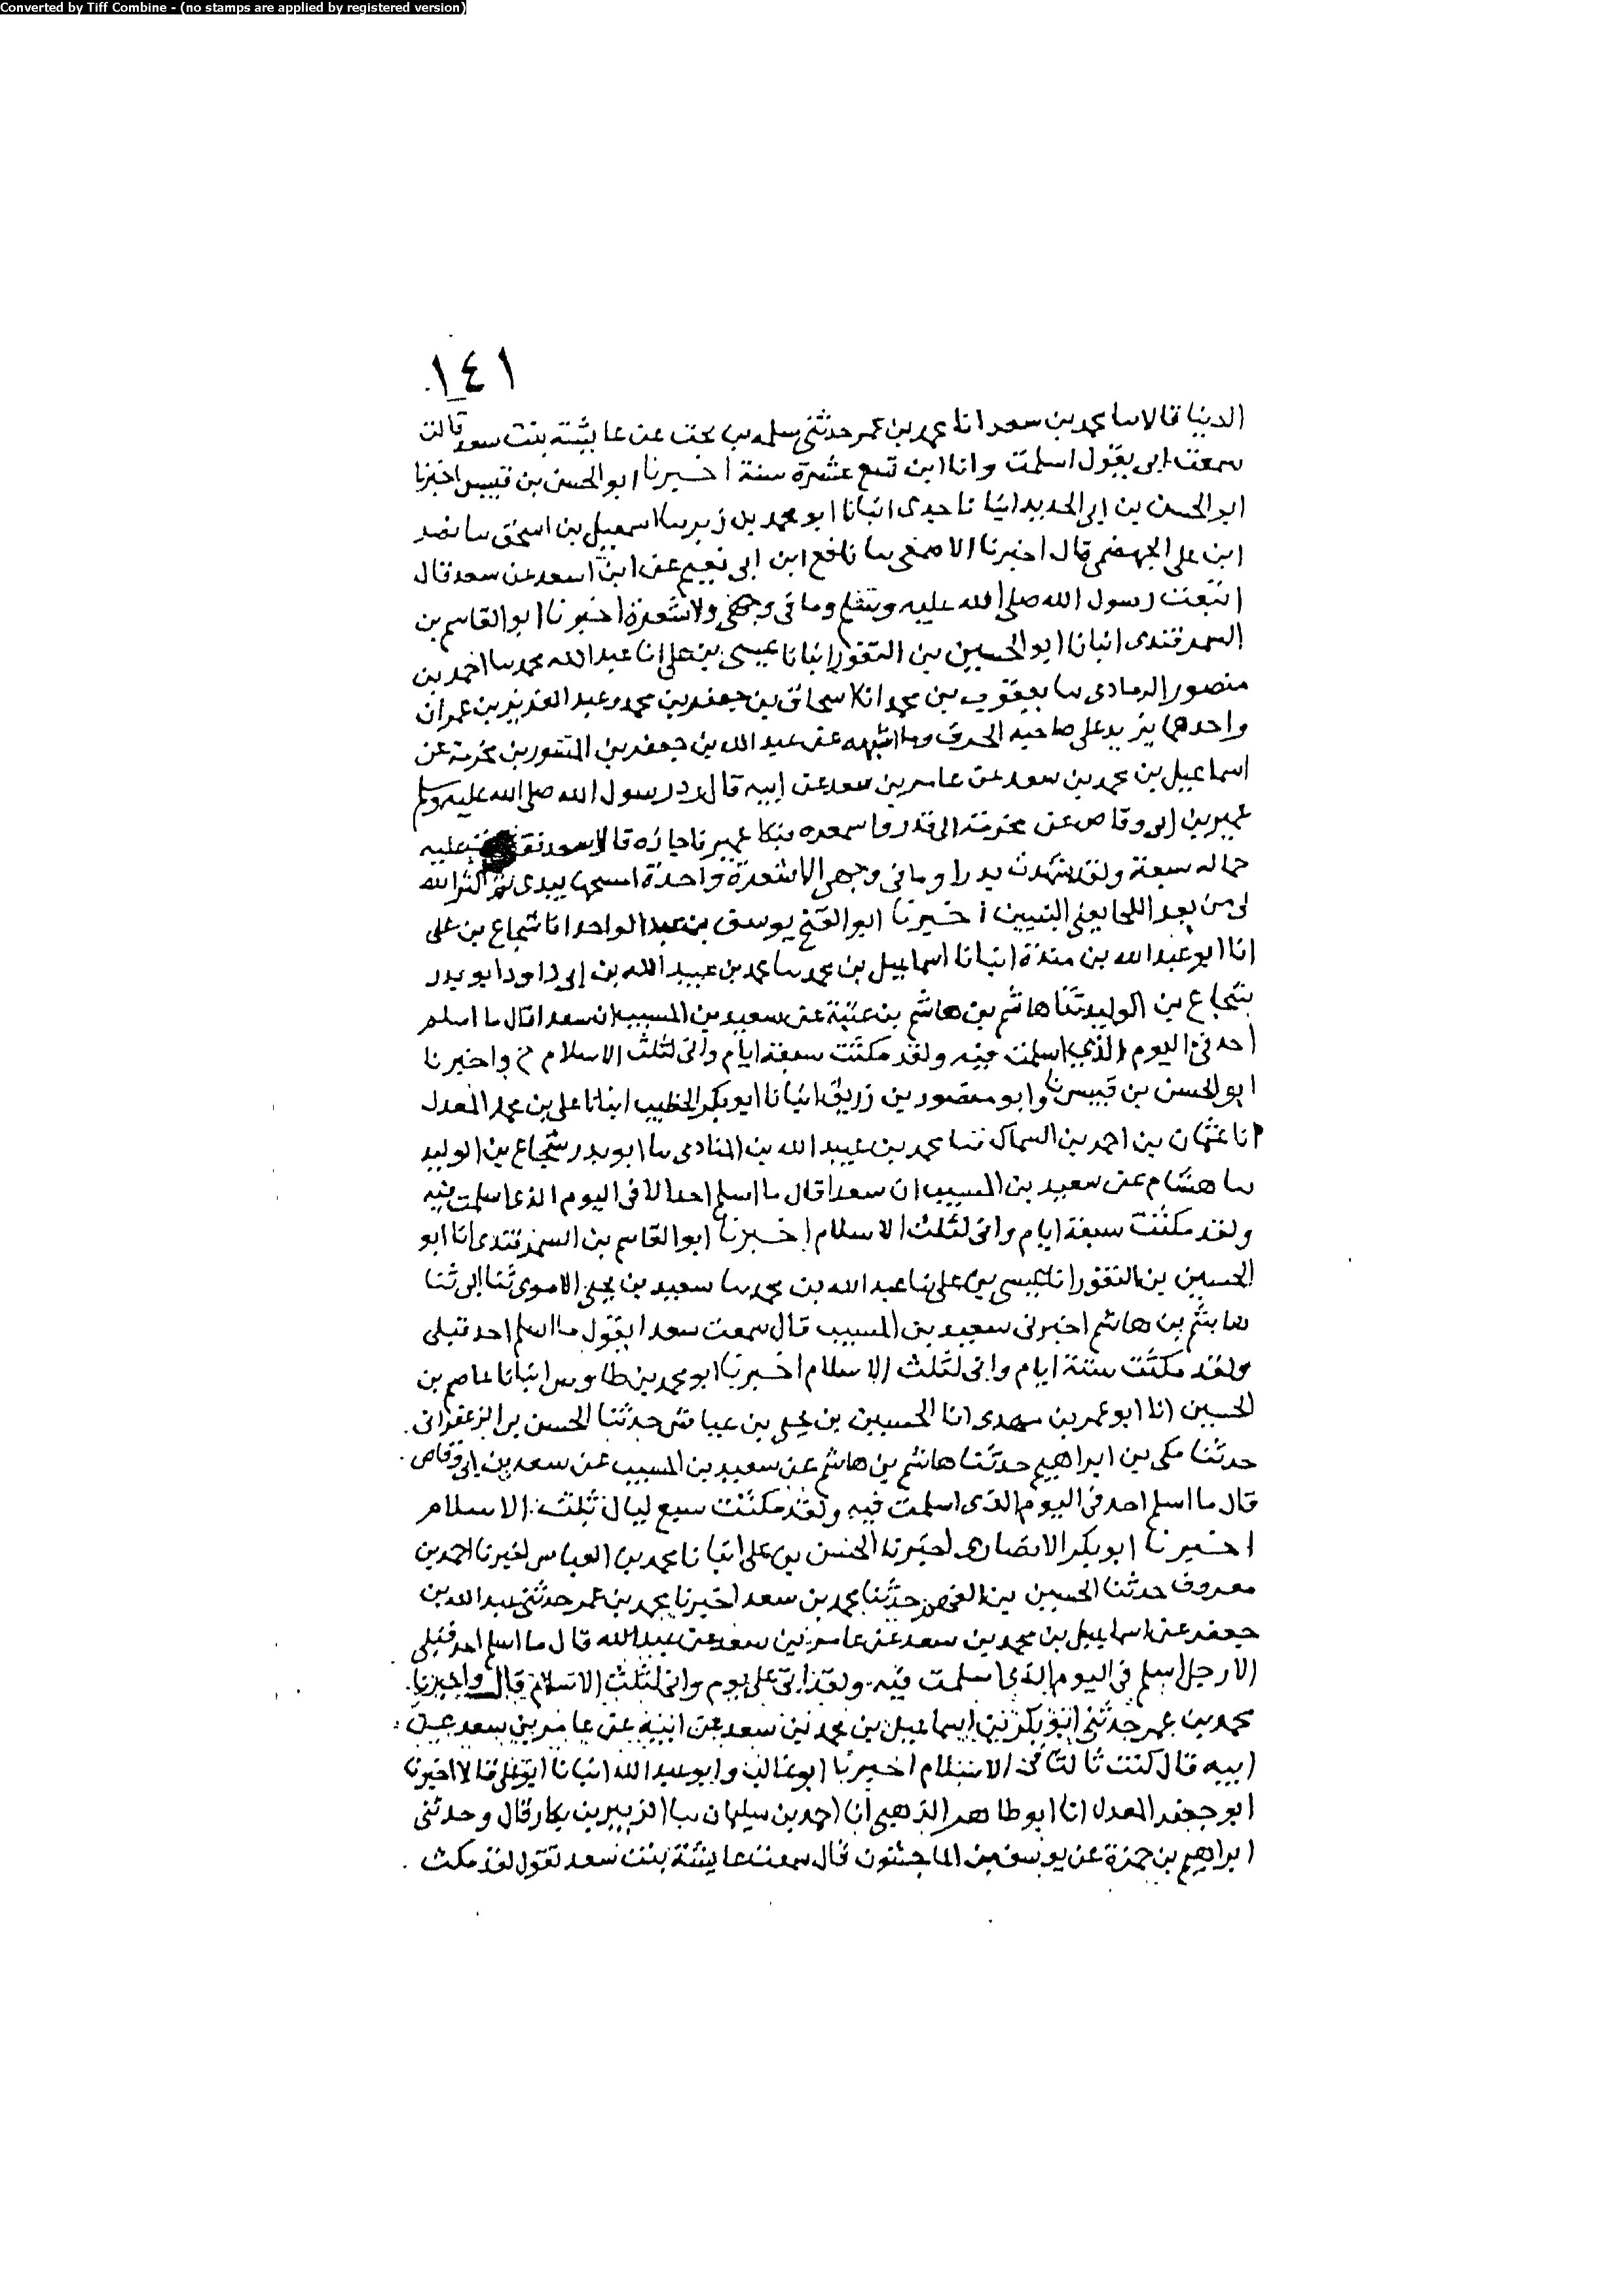 Converted by Tiff Combine - (no stamps are applied by registered version)
١٤١
الدنيا قالا سا محمد بن سعد انا محمد بن عمر حدثني سلمه بن بخت عن عايشة بنت سعد قالت
سمعت ابي يقول اسلمت وانا ابن تسع عشرة سنة اخبرنا ابو الحسن بن قبيس اخبرنا
ابو الحسن بن ابي الحديد انبانا جدي انبانا ابو محمد بن زبر سا اسمعيل بن اسحق سا نصر
ابن علي الجهضمي قال اخبرنا الاصمعي سا نافع ابن ابي نعيم عن ابن اسعد عن سعد قال
اتبعت رسول الله صلى الله عليه وسلم وما في وجهي ولا شعرة اخبرنا ابو القاسم بن
السمرقندي انبانا ابو الحسين بن النقور انبانا عيسى بن علي انا عبد الله محمد سا احمد بن
منصور الرمادي سا يعقوب بن محمد انا اسحاق بن جعفر بن محمد وعبد العزيز بن عمران
واحدهما يزيد على صاحبه الحرف وما اشبهه عن عبد الله بن جعفر بن المسور بن مخرمة عن
اسماعيل بن محمد بن سعد عن عامر بن سعد عن ابيه قال رد رسول الله صلى الله عليه وسلم
عمير بن ابي وقاص عن مخرجه الى بدر واستصغره فبكا عمير فاجازه قال سعد فعقدت عليه
حماله سيفه ولقد شهدت بدرا وما في وجهي الا شعرة واحدة امسحها بيدي ثم اكثر الله
لي من بعد اللحا يعني البنين اخبرنا ابو الفتح يوسف بن عبد الواحد انا شجاع بن علي
انا ابو عبد الله بن مندة انبانا اسماعيل بن محمد سا محمد بن عبيد الله بن ابي داود ابو بدر
شجاع بن الوليد ثنا هاشم بن هاشم بن عتبة عن سعيد بن المسيب ان سعدا قال ما اسلم
احد في اليوم الذي اسلمت فيه ولقد مكثت سبعة ايام واني لثلث الاسلام ح واخبرنا
ابو الحسن بن قبيس نا وابو منصور بن زريق انبانا ابو بكر الخطيب انبانا علي بن محمد المعدل
انا عثمان بن احمد بن السماك ثنا محمد بن عبيد الله بن المنادي سا ابو بدر شجاع بن الوليد
سا هشام عن سعيد بن المسيب ان سعدا قال ما اسلم احد الا في اليوم الذي اسلمت فيه
ولقد مكثت سبعة ايام واني لثلث الاسلام اخبرنا ابو القاسم بن السمرقندي انا ابو
الحسين بن النقور انا عيسى بن علي نا عبد الله بن محمد سا سعيد بن يحيى الاموي ثنا ابي ثنا
هاشم بن هاشم اخبرني سعيد بن المسيب قال سمعت سعدا يقول ما اسلم احد قبلي
ولقد مكثت ستة ايام واني لثلث الاسلام اخبرنا ابو محمد بن طاوس انبانا عاصم بن
الحسين انا ابو عمر بن مهدي انا الحسين بن يحيى بن عياش حدثنا الحسن بن الزعفراني
حدثنا مكي بن ابراهيم حدثنا هاشم بن هاشم عن سعيد بن المسيب عن سعد بن ابي وقاص
قال ما اسلم احد في اليوم الذي اسلمت فيه ولقد مكثت سبع ليال ثلث الاسلام
اخبرنا ابو بكر الانصاري اخبرنا الحسن بن علي انبانا محمد بن العباس اخبرنا احمد بن
معروف حدثنا الحسين بن الفهم حدثنا محمد بن سعد اخبرنا محمد بن عمر حدثني عبد الله بن
جعفر عن اسماعيل بن محمد بن سعد عن عامر بن سعد عن عبد الله قال ما اسلم احد قبلي
الا رجل اسلم في اليوم الذي اسلمت فيه ولقد اتى علي يوم واني لثلث الاسلام قال واخبرنا
محمد بن عمر حدثني ابو بكر بن اسماعيل بن محمد بن سعد عن ابيه عن عامر بن سعد عن
ابيه قال كنت ثالثا في الاسلام اخبرنا ابو غالب وابو عبد الله انبانا ابو علي قالا اخبرنا
ابو جعفر المعدل انا ابو طاهر الذهبي انا احمد بن سليمان سا الزبير بن بكار قال وحدثني
ابراهيم بن حمزة عن يوسف بن الماجشون قال سمعت عايشة بنت سعد تقول لقد مكث